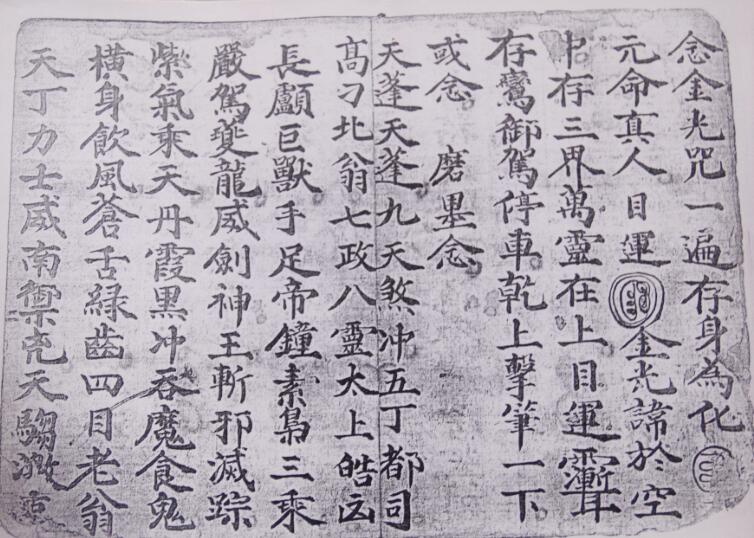 念金光咒一遍存身為化
元命真人目運金光諱於空
中存三界萬靈在上目運
存鸞御駕停車乾上擊筆一下
或念 磨墨念
天蓬天蓬九天煞冲五丁都司
高刁北翁七政八靈太上皓凶
長顱巨獸手足帝鐘素梟三乘
嚴駕夔龍威劍神王斬邪滅踪
紫氣乘天丹霞黑冲吞魔食鬼
橫身飲風蒼舌緑齒四目老翁
天丁力士威南禦兇天騶激